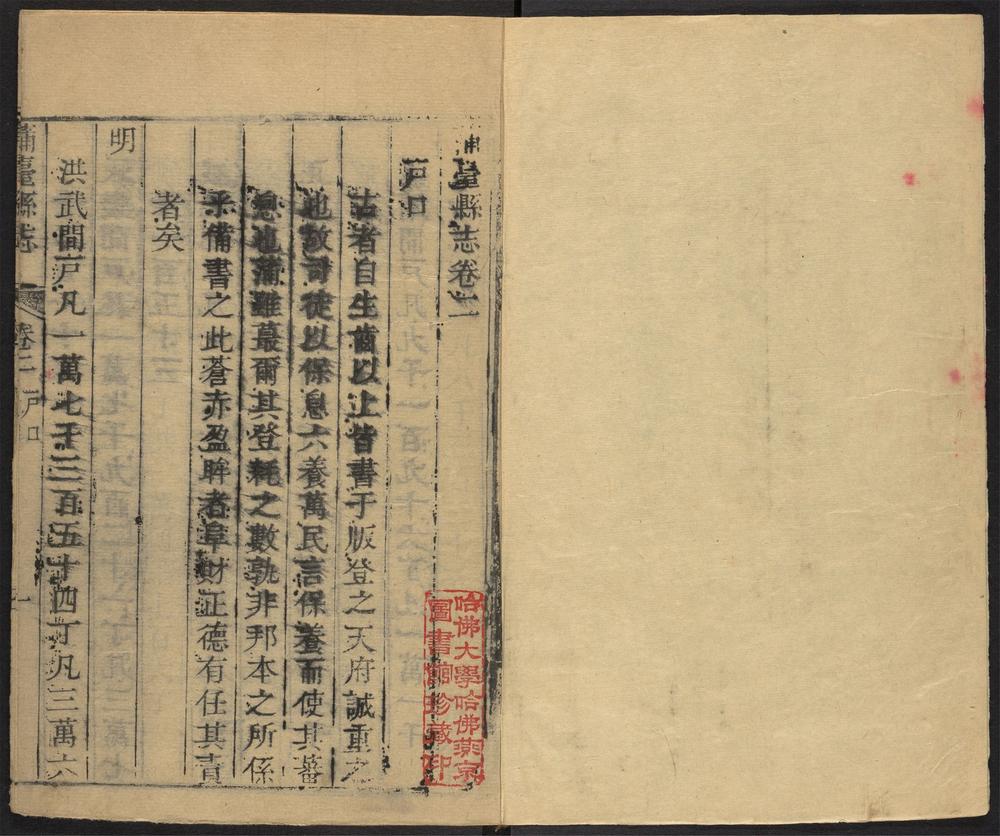 蒲臺縣志卷二
戶口
古者自生齒以上皆書于版登之天府誠重之
也故司徒以保息六養萬民言保養而使其蕃
息也蒲雖蕞爾其登耗之數孰非邦本之所係
乎備書之此蒼赤盈眸者阜財正德有任其責
者矣
明
洪武間戶凡一萬七千三百五十四丁凡三萬六
蒲臺縣志
卷二 戶口
一
哈佛大學哈佛燕京
圖書館珍藏印